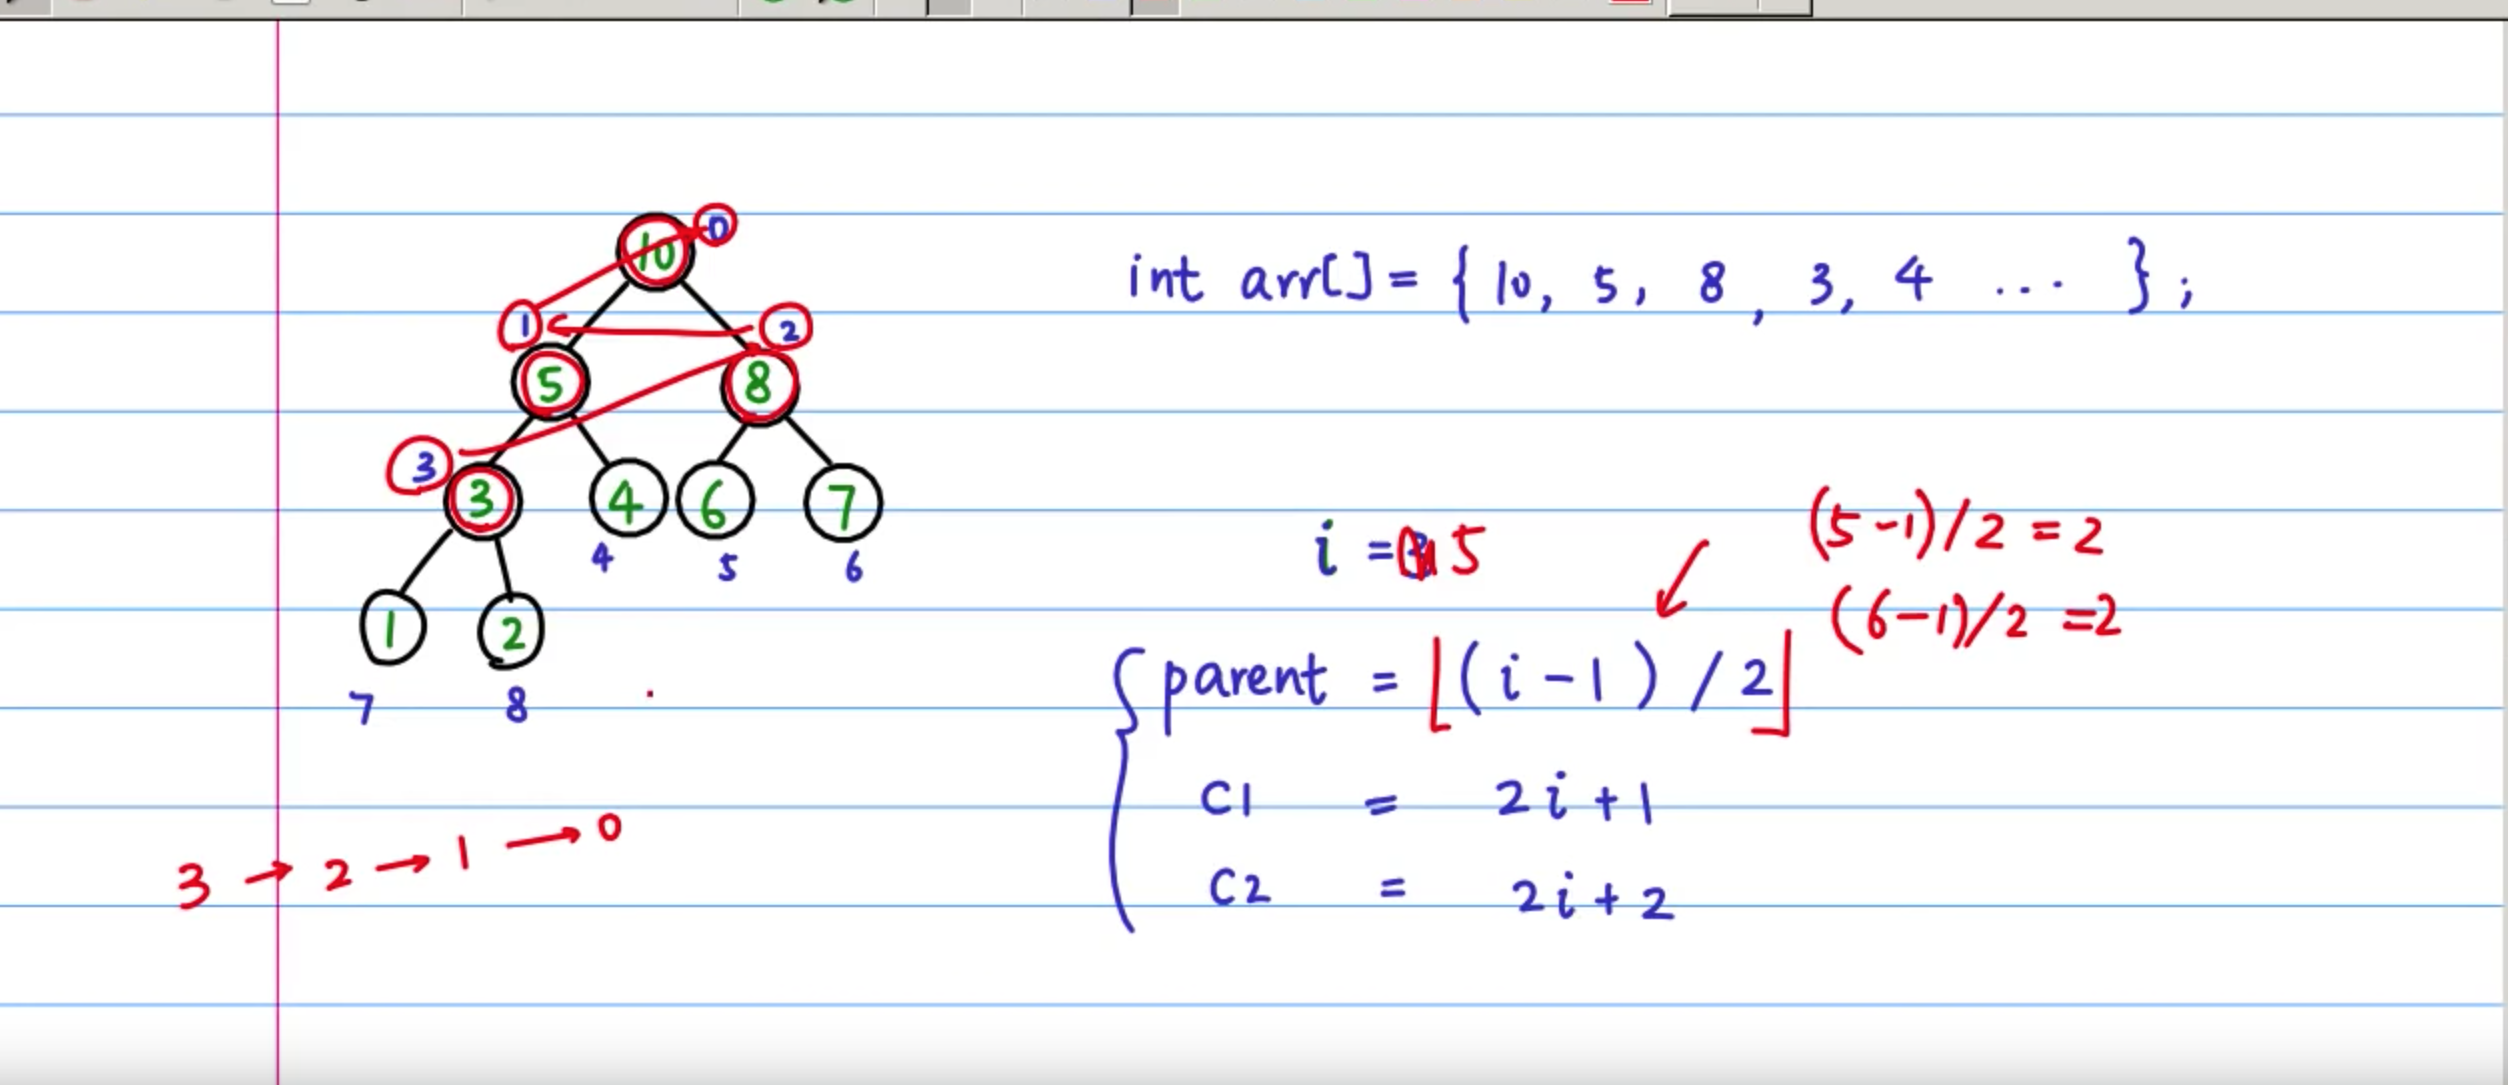 10 0
1 2
5 8
3
3 4 6 7
4 5 6
1 2
7 8
3 → 2 → 1 → 0
int arr[] = { 10, 5, 8, 3, 4 ... };
i = 5
(5-1)/2 = 2
(6-1)/2 = 2
parent = ⌊(i-1)/2⌋
c1 = 2i+1
c2 = 2i+2